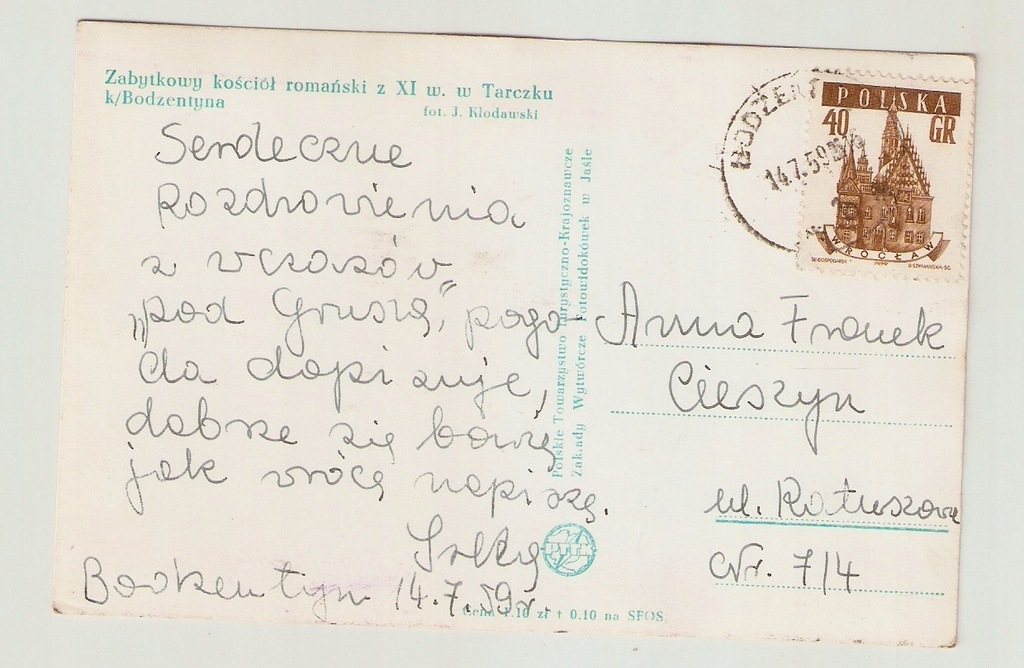 Zabytkowy kościół romański z XI w. w Tarczku
k/Bodzentyna
fot. J. Kłodawski
Serdeczne
Pozdrowienia
z wczasów
„pod Gruszą", pogo-
da dopisuje,
dobrze się bawię
jak wrócę napiszę.
Bodzentyn 14.7.59r.
Polskie Towarzystwo Turystyczno-Krajoznawcze
Zakłady Wytwórcze Fotowidokówek w Jaśle
PTTK
Cena 1.10 zł + 0.10 na SFOS
BODZENT
14.7.59
POLSKA
40 GR
WROCŁAW
Anna Franek
Cieszyn
ul. Ratuszowa
Nr. 7/4